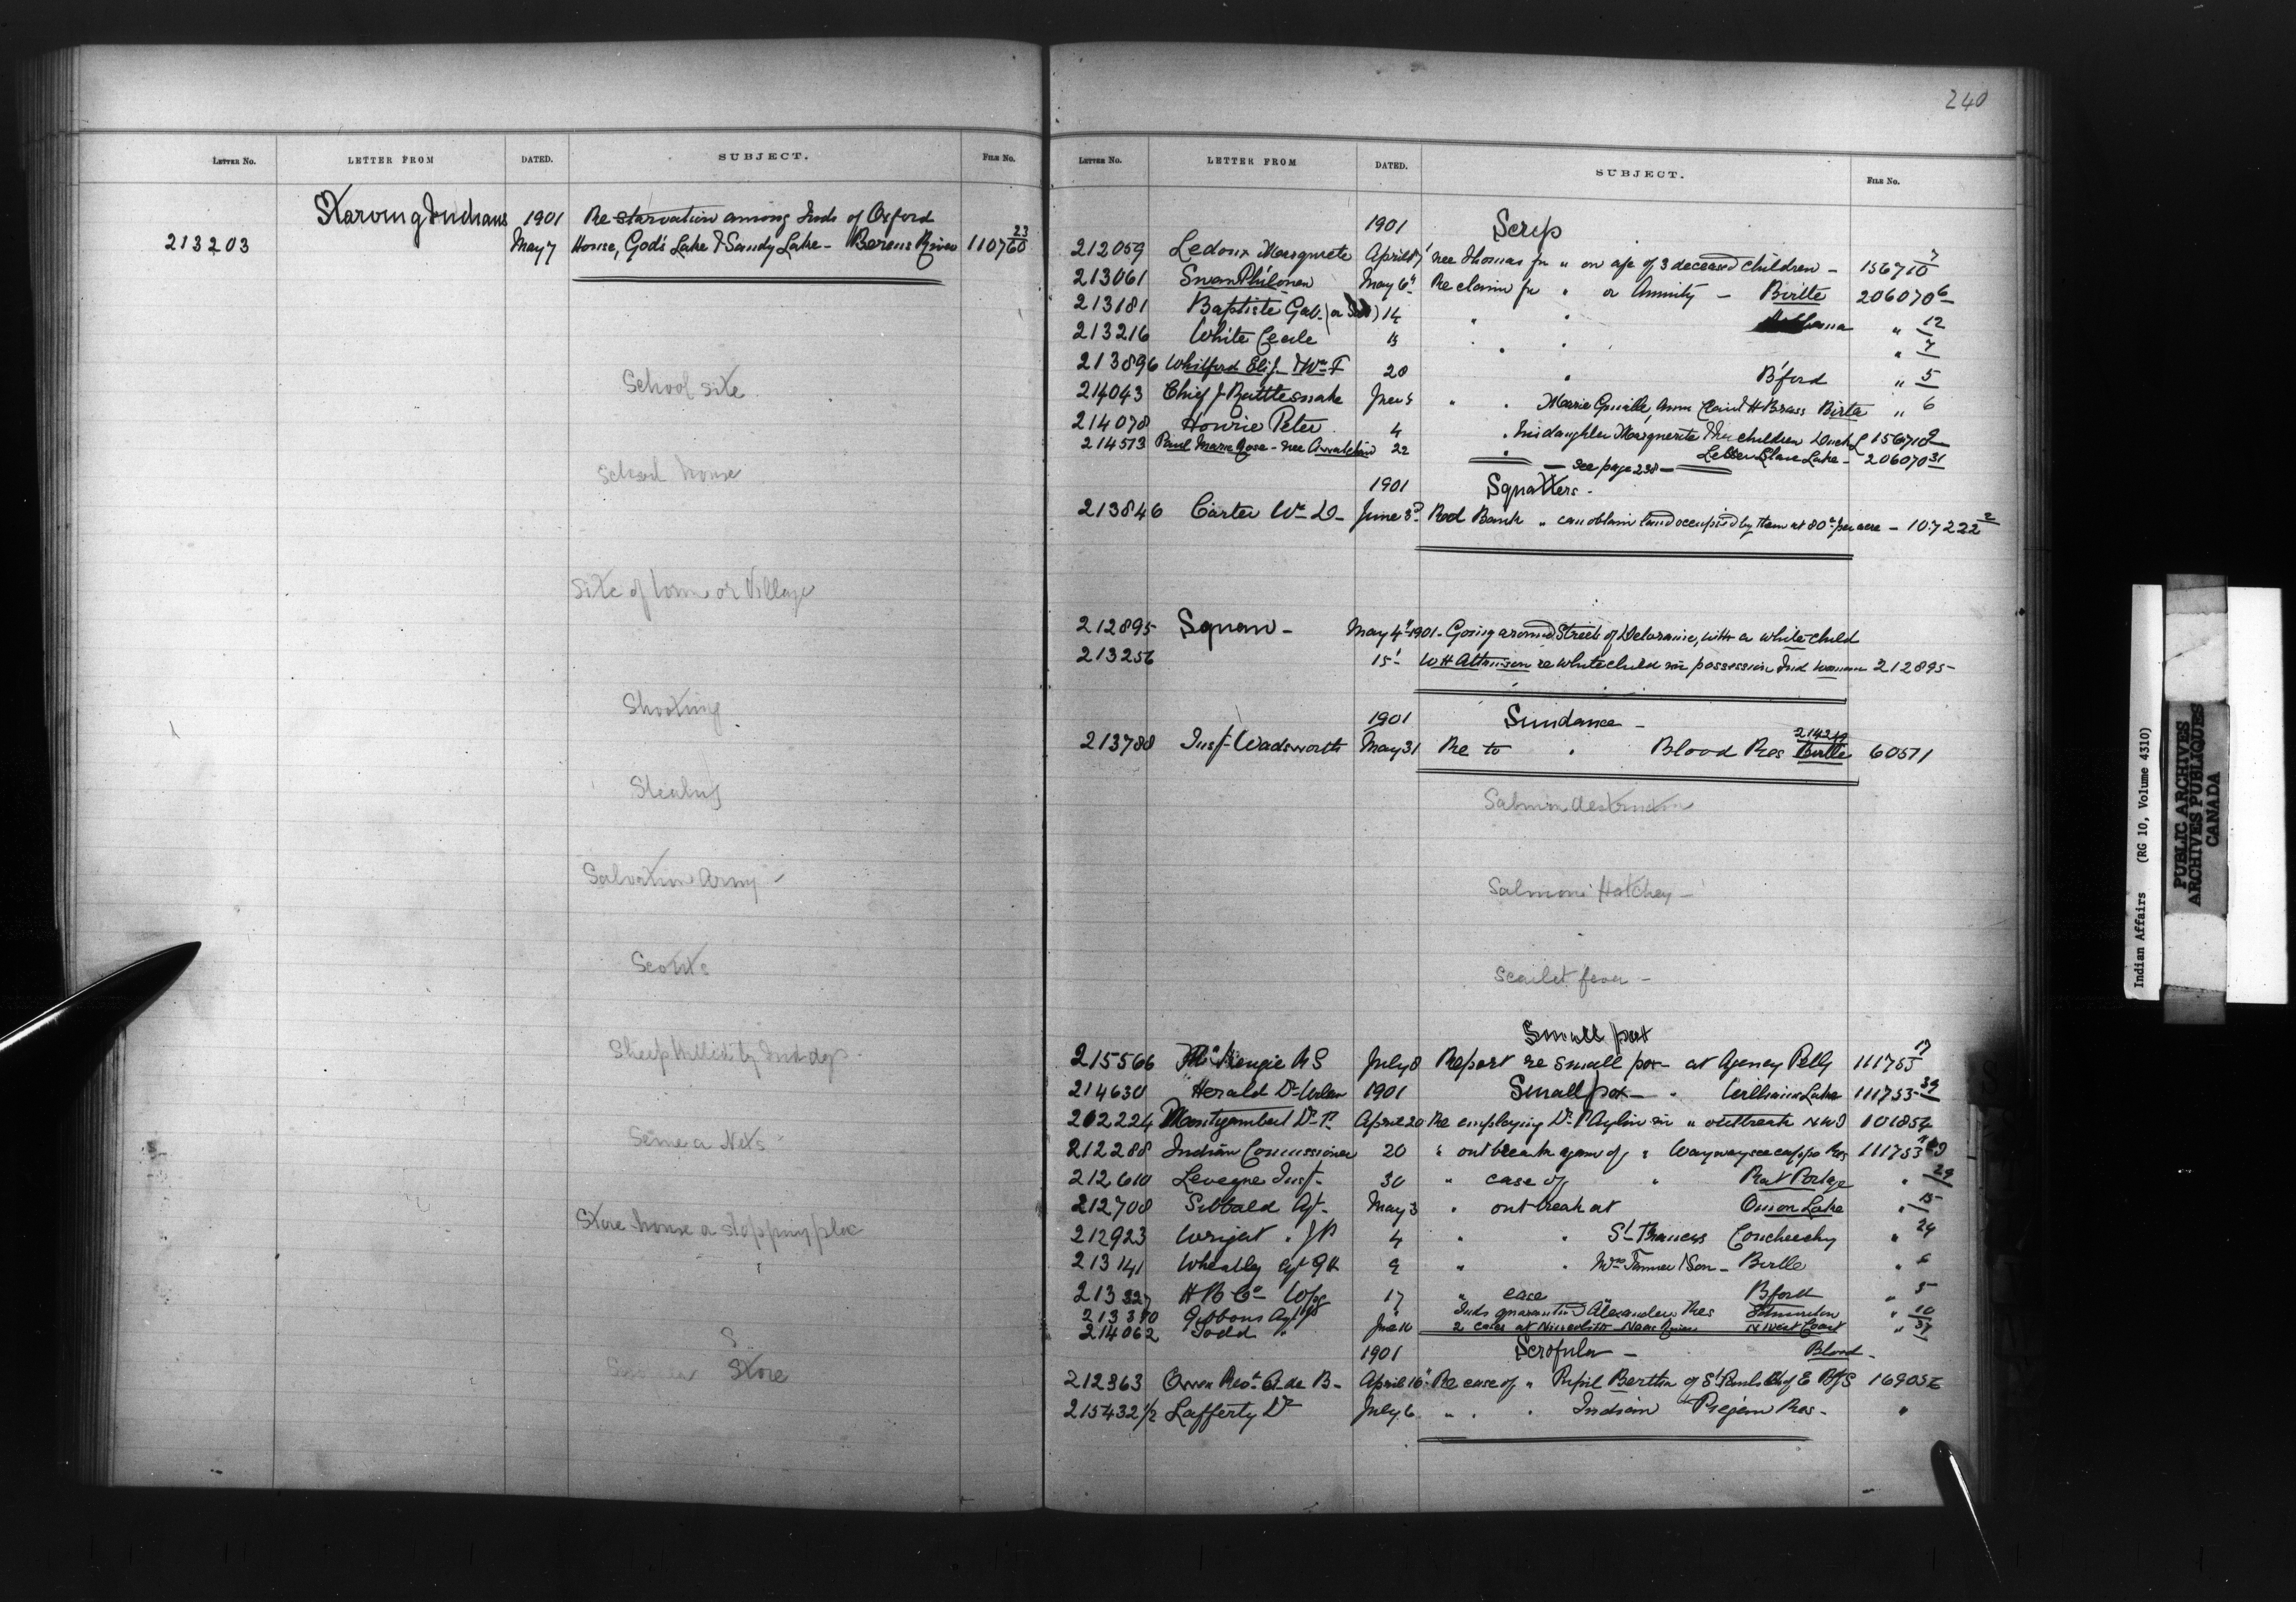 240
LETTER NO. LETTER FROM DATED. SUBJECT. FILE NO.
Starving Indians 1901 Re starvation among Inds of Oxford
213203 May 7 House, God's Lake & Sandy Lake - Berens River 110760 23
School site
School house
Site of town or Village
Shooting
Stealing
Salvation Army -
Scouts
Sheep killed by Ind dogs
Seine a Nets
Store house a stopping place
S
Store
LETTER NO. LETTER FROM DATED. SUBJECT. FILE NO.
1901 Scrip
212059 Ledoux Margurete April 17 nee Thomas for " on a/c of 3 deceased children - 156710 7
213061 Swan Philomen May 6" Re claim for " or Annuity - Birtle 206070 6
213181 Baptiste Gab. 14 " " " 12
213216 White Cecile 13 " " " 7
213896 Whitford Eliz. & Wm F 28 " B'ford " 5
214043 Chief J Rattlesnake June 5 " " Marie H Brass Birtle " 6
214078 Hourie Peter 4 " his daughter Marguerite & her children Duck L 156710 2
214513 Paul Marie Rose - nee 22 " Lesser Slave Lake - 206070 31
- see page 238 -
1901 Squatters -
213846 Carter Wm D - June 3rd Red Bank " can obtain land occupied by them at 80c per acre - 107222 2
212895 Squaw - May 4" 1901 - Going around Streets of Deloraine, with a white child
213256 15" W H re white child in possession Ind woman 212895 -
1901 Sundance -
213788 Insp. Wadsworth May 31 Re to " Blood Res Birtle 60571
Salmon destruction
Salmon Hatchery -
Scarlet fever -
Small pox
215566 McKenzie N S July 8 Report re small pox - at Agency Pelly 111753 17
214630 Herald Dr 1901 Small pox - " Williams Lake 111753 39
202224 Montizambert Dr F. April 20 Re employing Dr Aylen in " outbreak N W T 101854
212288 Indian Commissioner 20 " outbreak again of " Waywayseecappo Res 111753
212610 Leveque Insp - 30 " case of " Rat Portage " 29
212708 Sibbald Agt - May 3 " outbreak at Onion Lake " 15
212923 Wright " J P 4 " " St Francis Coucheeching " 24
213141 Wheatley Agt G H 9 " " Mrs Tanner & Son - Birtle " 6
213327 H B Co - Wpg 17 " case B'ford " 5
213370 Gibbons Agt Inds quarantined Alexanders Res Edmonton " 10
214062 Todd " June 10 2 cases at Naas River N West Coast " 37
1901 Scrofula - Blood -
212363 Owen Revd A. de B - April 16" Re case of " Pupil Bertha of St Pauls Ch of E B/S 16903
215432 1/2 Lafferty Dr July 6 " " " Indian Piegan Res - "
Indian Affairs (RG 10, Volume 4310)
PUBLIC ARCHIVES
ARCHIVES PUBLIQUES
CANADA